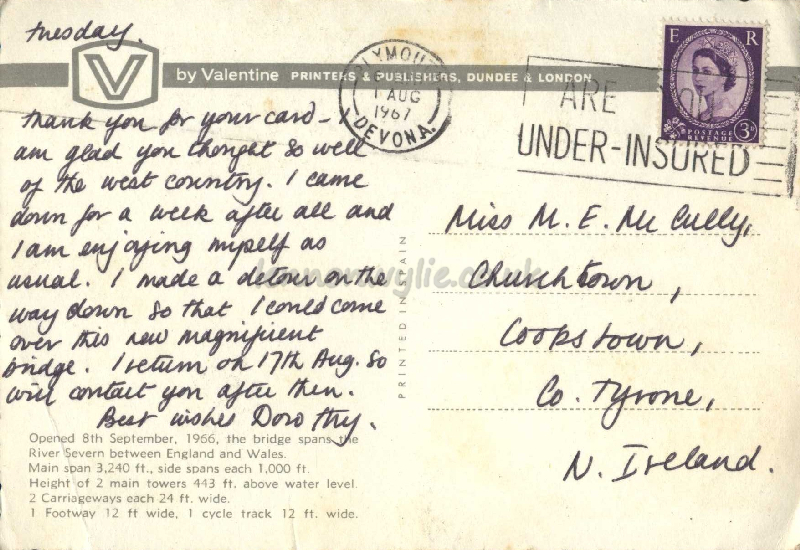 Tuesday.
V
by Valentine PRINTERS & PUBLISHERS, DUNDEE & LONDON
Thank you for your card - I
am glad you thought so well
of the west country. I came
down for a week after all and
I am enjoying myself as
usual. I made a detour on the
way down so that I could come
over this new magnificent
bridge. I return on 17th Aug. so
will contact you after then.
Best wishes Dorothy.
Opened 8th September, 1966, the bridge spans the
River Severn between England and Wales.
Main span 3,240 ft., side spans each 1,000 ft.
Height of 2 main towers 443 ft. above water level.
2 Carriageways each 24 ft. wide.
1 Footway 12 ft wide, 1 cycle track 12 ft. wide.
PRINTED IN SPAIN
PLYMOUTH
1 AUG
1967
DEVON A.
ARE
UNDER-INSURED
E R
POSTAGE
REVENUE
3D
Miss M. E. Mc Cully,
Churchtown,
Cookstown,
Co. Tyrone,
N. Ireland.
lennonwylie.co.uk